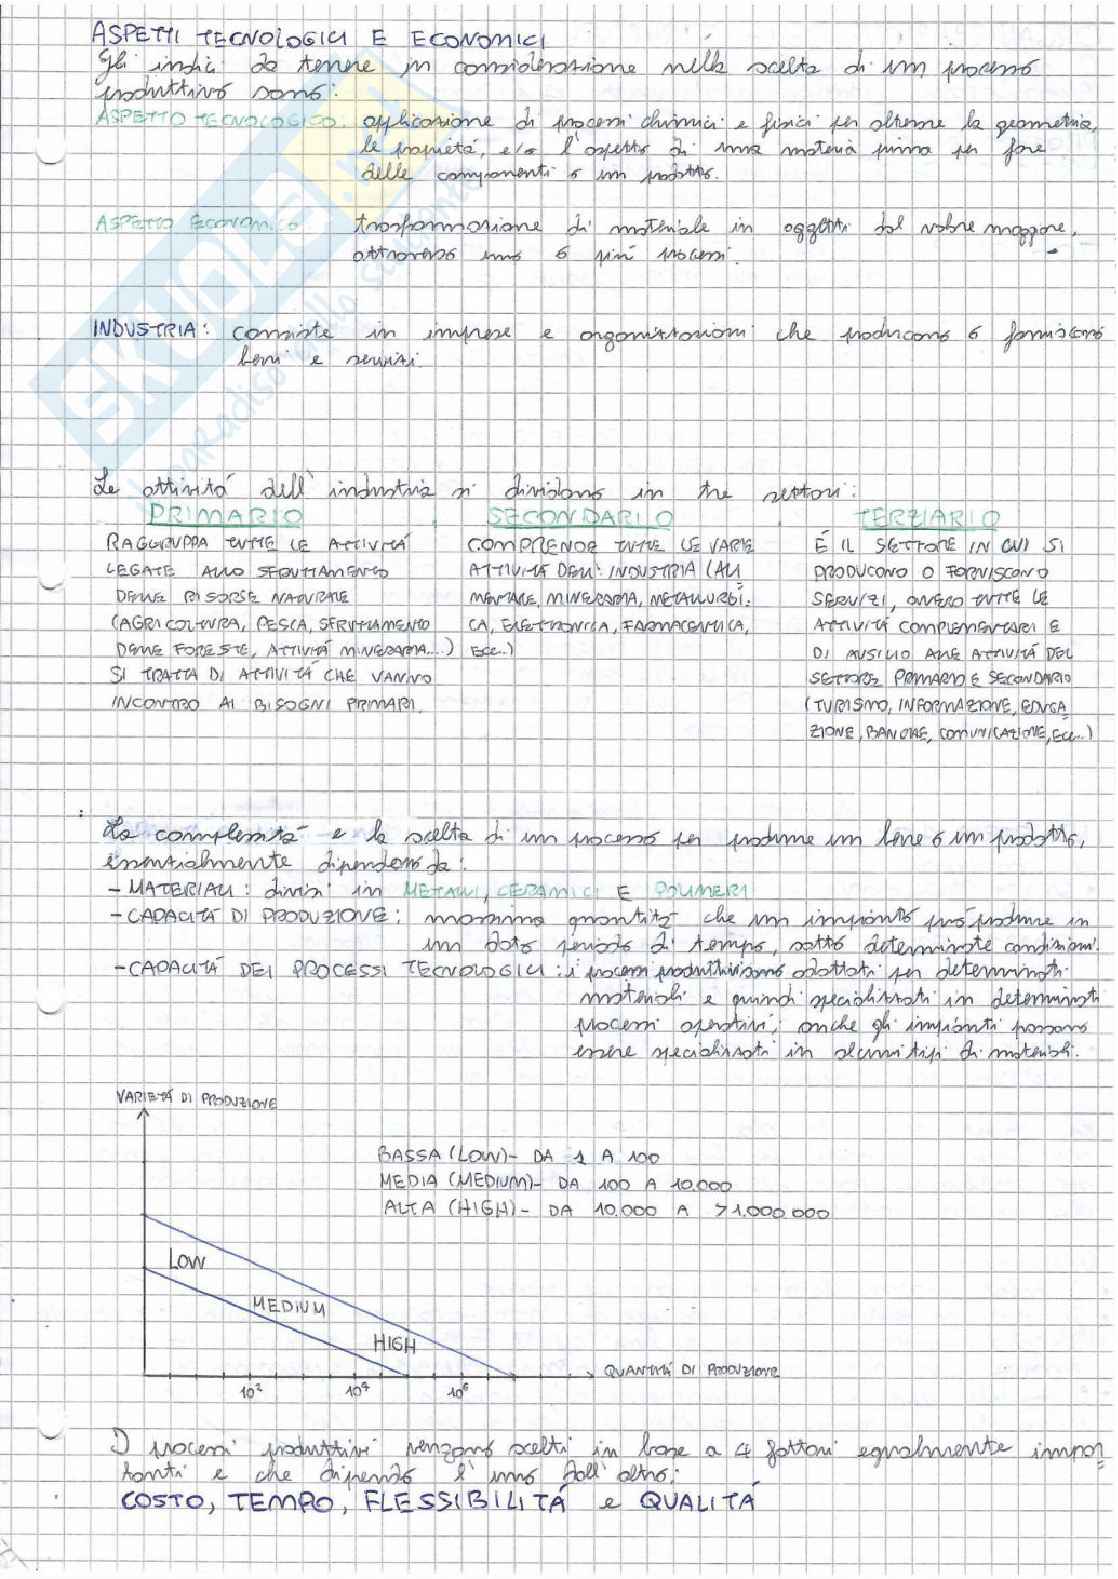 ASPETTI TECNOLOGICI E ECONOMICI
Gli indici da tenere in considerazione nella scelta di un processo
produttivo sono:
ASPETTO TECNOLOGICO: applicazione di processi chimici e fisici per ottenere la geometria,
le proprietà, e/o l'aspetto di una materia prima per fare
delle componenti o un prodotto.
ASPETTO ECONOMICO: trasformazione di materiale in oggetti dal valore maggiore,
attraverso uno o più processi.
INDUSTRIA: consiste in imprese e organizzazioni che producono o forniscono
beni e servizi.
Le attività dell'industria si dividono in tre settori:
PRIMARIO
RAGGRUPPA TUTTE LE ATTIVITÁ
LEGATE ALLO SFRUTTAMENTO
DELLE RISORSE NATURALI
(AGRICOLTURA, PESCA, SFRUTTAMENTO
DELLE FORESTE, ATTIVITÁ MINERARIA....)
SI TRATTA DI ATTIVITÁ CHE VANNO
INCONTRO AI BISOGNI PRIMARI.
SECONDARIO
COMPRENDE TUTTE LE VARIE
ATTIVITÁ DELL'INDUSTRIA (ALI
MENTARE, MINERARIA, METALLURGI:
CA, ELETTRONICA, FARMACEUTICA,
ECC..)
TERZIARIO
É IL SETTORE IN CUI SI
PRODUCONO O FORNISCONO
SERVIZI, OVVERO TUTTE LE
ATTIVITÁ COMPLEMENTARI E
DI AUSILIO ALLE ATTIVITÁ DEL
SETTORE PRIMARIO E SECONDARIO
(TURISMO, INFORMAZIONE, EDUCA
ZIONE, BANCHE, COMUNICAZIONE, ECC...)
La complessità e la scelta di un processo per produrre un bene o un prodotto,
essenzialmente dipendono da:
- MATERIALI: divisi in METALLI, CERAMICI E POLIMERI
- CAPACITÁ DI PRODUZIONE: massima quantità che un impianto può produrre in
un dato periodo di tempo, sotto determinate condizioni.
- CAPACITÁ DEI PROCESSI TECNOLOGICI: i processi produttivi sono adottati per determinati
materiali e quindi specializzati in determinati
processi operativi; anche gli impianti possono
essere specializzati in alcuni tipi di materiali.
VARIETÁ DI PRODUZIONE
BASSA (LOW)- DA 1 A 100
MEDIA (MEDIUM)- DA 100 A 10.000
ALTA (HIGH)- DA 10.000 A >1.000.000
LOW
MEDIUM
HIGH
QUANTITÁ DI PRODUZIONE
10² 10⁴ 10⁶
I processi produttivi vengono scelti in base a 4 fattori egualmente impor
tanti e che dipendo l'uno dall'altro:
COSTO, TEMPO, FLESSIBILITÁ e QUALITÁ